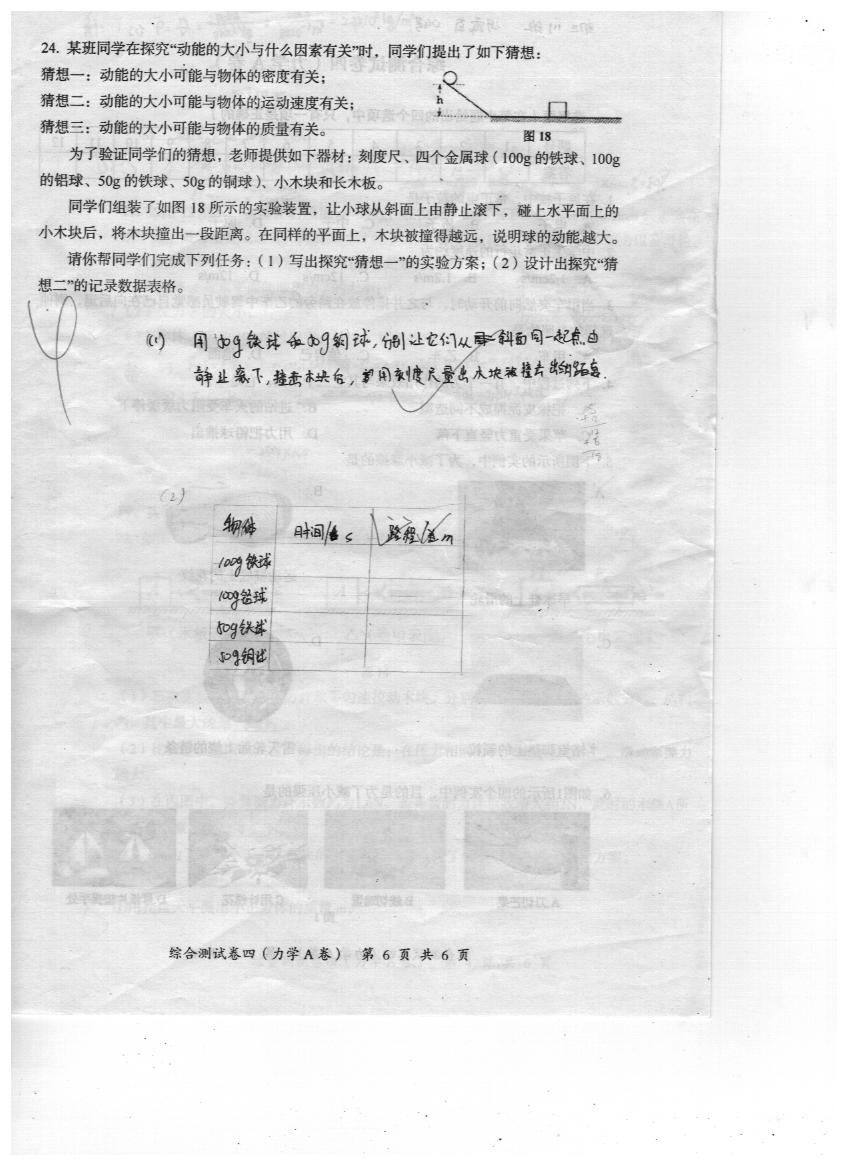 24. 某班同学在探究“动能的大小与什么因素有关”时，同学们提出了如下猜想：
猜想一：动能的大小可能与物体的密度有关；
猜想二：动能的大小可能与物体的运动速度有关；
猜想三：动能的大小可能与物体的质量有关。
h
图 18
为了验证同学们的猜想，老师提供如下器材：刻度尺、四个金属球（100g 的铁球、100g
的铝球、50g 的铁球、50g 的铜球）、小木块和长木板。
同学们组装了如图 18 所示的实验装置，让小球从斜面上由静止滚下，碰上水平面上的
小木块后，将木块撞出一段距离。在同样的平面上，木块被撞得越远，说明球的动能越大。
请你帮同学们完成下列任务：（1）写出探究“猜想一”的实验方案；（2）设计出探究“猜
想二”的记录数据表格。
(1) 用50g铁球和50g铜球，分别让它们从斜面同一起点由
静止滚下，撞击木块后，用刻度尺量出木块被撞击出的距离.
(2)
物体 时间/s 路程/m
100g铁球
100g铝球
50g铁球
50g铜球
综合测试卷四（力学 A 卷） 第 6 页 共 6 页